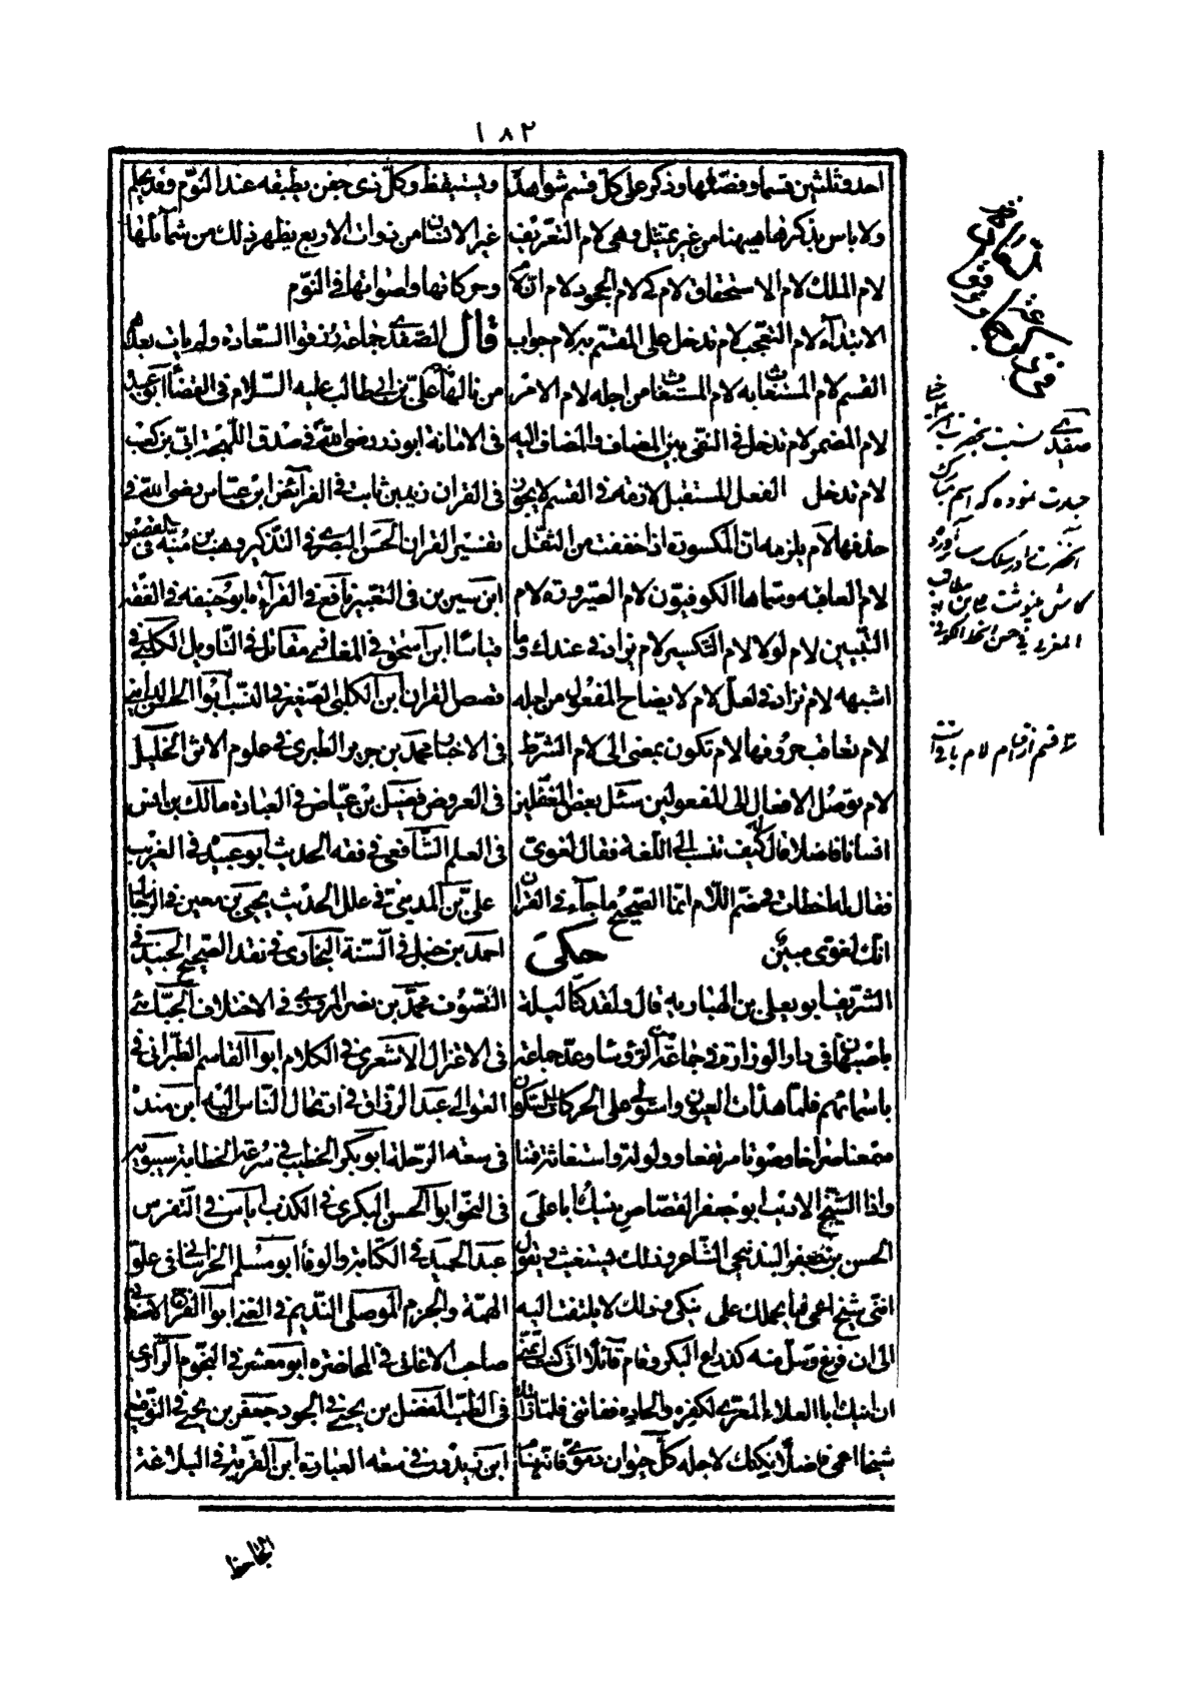 ١٨٢
احد وثلثين قسما وفصّلها وذكر على كلّ قسم شواهد
ولا باس بذكرها هيهنا من غير تمثيل وهى لام التعريف
لام الملك لام الاستحقاق لام كى لام الجحود لام انّ لام
الابتداء لام التعجب لام تدخل على المقسم به لام جواب
القسم لام المستغاث به لام المستغاث من اجله لام الامر
لام المضمر لام تدخل فى النفى بين المضاف والمضاف اليه
لام تدخل الفعل المستقبل لازمة فى القسم لا يجوز
حذفها لام يلزمه ان المكسورة اذا خففت من الثقيل
لام العاقبه وسماها الكوفيون لام الصيرورة لام
التبيين لام لولا لام التكسير لام يزاد فى عندك وما
اشبهه لام تزاد فى لعل لام لايضاح المفعول من اجله
لام تعاقب حروفها لام تكون بمعنى الى لام الشرط
لام توصل الافعال الى المفعولين سئل بعض المغفلين
انسانا فاضلا قال كيف تنسب الى اللغة فقال لغوىّ
فقال له اخطات فى ضم اللام انما الصحيح ما جآء فى القران
انّك لغوىّ مبين حكى
الشريف ابو يعلى بن الهبارية قال ولقد كنا ليلة
باصبهان فى دار الوزارة فى جماعة من الرؤسا وعدّ جماعة
باسمائهم فلمّا هدأت العيون واستولى على الحركات السكون
سمعنا صراخا وصوتا مرتفعا وولولة واستغاثة فقمنا
واذا الشيخ الاديب ابو جعفر القصاص ينيك ابا على
الحسن بن جعفر البندنيجى الشاعر وذلك يستغيث ويقول
انّنى شيخ اعمى فما يحملك على نيكى وذلك لا يلتفت اليه
الى ان فرغ وسلّ منه كذراع البكر وقام قائلا انى كنت اتمنّى
ان انيك ابا العلاء المعرّى لكفره والحاده ففاتنى فلمّا رايتك
شيخا اعمى فاضلا نكتك لاجله كلّ حيوان دموىّ فانه ينام
ويستيقظ وكلّ ذى جفن يطبقه عند النوم وقد يحلم
غير الانسان من ذوات الاربع يظهر ذلك من شمائلها
وحركاتها واصواتها فى النوم
قال الصفدى جماعة رزقوا السعادة ولم يات بعدهم
من نالها علىّ بن ابى طالب عليه السّلام فى القضاء ابو عبيدة
فى الامانة ابو ذر رضى الله فى صدق اللهجة ابىّ بن كعب
فى القران زيد بن ثابت فى الفرائض ابن عباس رضى الله فى
تفسير القران الحسن البصرى فى التذكير وهب بن منبه فى القصص
ابن سيرين فى التعبير نافع فى القراءة ابو حنيفه فى الفقه
قياسا ابن اسحق فى المغازى مقاتل فى التاويل الكلبى فى
قصص القران ابن الكلبى الصغير فى النسب ابو الحسن المداينى
فى الاخبار محمد بن جرير الطبرى فى علوم الاثر الخليل
فى العروض فضيل بن عياض فى العبادة مالك بن انس
فى العلم الشافعى فى فقه الحديث ابو عبيد فى الغريب
علىّ بن المدينى فى علل الحديث يحيى بن معين فى الرجال
احمد بن حنبل فى السنة البخارى فى نقد الصحيح الجنيد فى
التصوف محمد بن نصر المروزى فى الاختلاف الجبّائى
فى الاعتزال الاشعرى فى الكلام ابو القاسم الطبرانى فى
العوالى عبد الرزاق فى ارتحال الناس اليه ابن منده
فى سعة الرحلة ابو بكر الخطيب فى سرعة الخطابة سيبويه
فى النحو ابو الحسن البكرى فى الكذب اياس فى التفرس
عبد الحميد فى الكتابة والوفا ابو مسلم الخراسانى فى علوّ
الهمّة والحزم الموصلى النديم فى الغنا ابو الفرج الاصفهانى
صاحب الاغانى فى المحاضره ابو معشر فى النجوم الرازى
فى الطبّ الفضل بن يحيى فى الجود جعفر بن يحيى فى التوقيع
ابن زيدون فى سعة العبارة ابن القرية فى البلاغة
الجاحظ
صفدى نسبت بحضرت
جسارت نموده كه اسم مبارك
آنحضرت را در سلك آورده